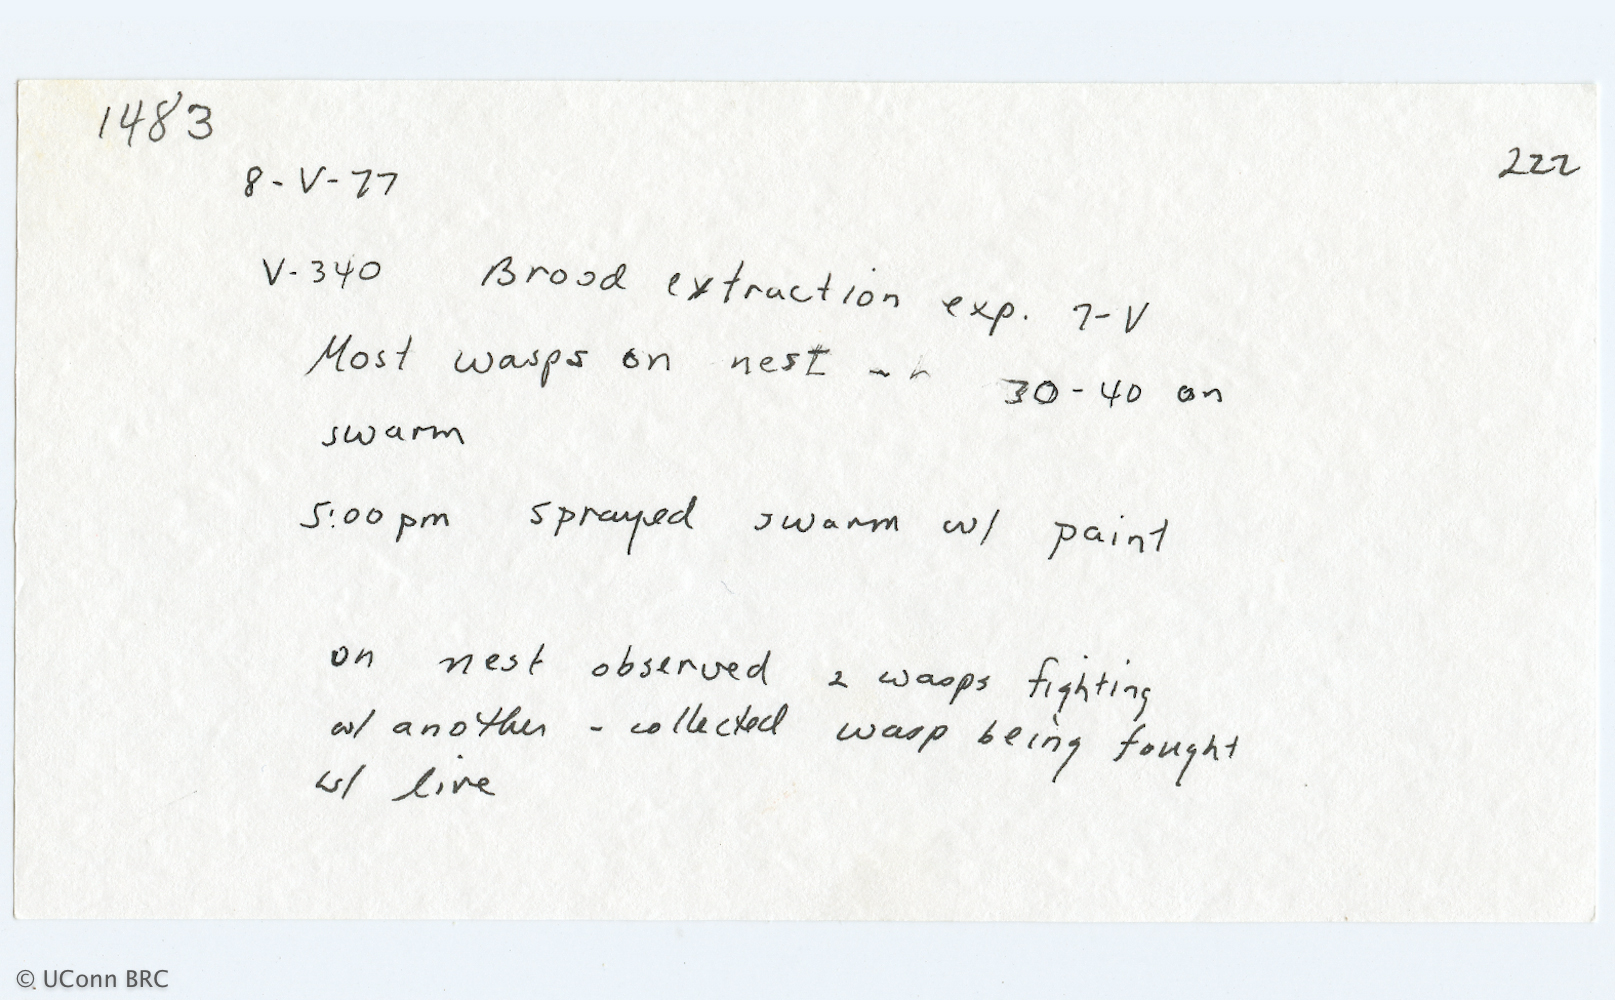 1483
222
8-V-77
V-340 Brood extraction exp. 7-V
Most wasps on nest - 30-40 on
swarm
5:00 pm sprayed swarm w/ paint
on nest observed 2 wasps fighting
w/ another - collected wasp being fought
w/ live
© UConn BRC